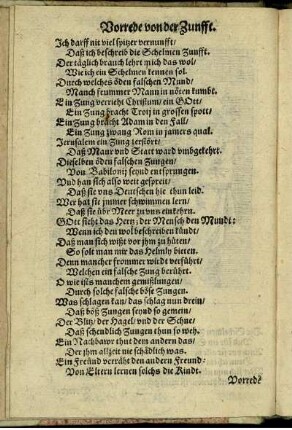 Vorrede von der Zunfft.
Ich darff nit viel spitzer vernunfft/
Daß ich beschreib die Schelmen Zunfft.
Der täglich brauch lehrt mich das wol/
Wie ich ein Schelmen kennen sol.
Durch welches öden falschen Mund/
Manch frummer Mann in nöten kumbt.
Ein Zung verrieht Christum/ ein GOtt/
Ein Zung bracht Troij in grossen spott/
Ein Zung bracht Adam in den Fall/
Ein Zung zwang Rom in jamers qual.
Jerusalem ein Zung zerstört/
Daß Maur vnd Statt ward vmbgekehrt.
Dieselben öden falschen Zungen/
Von Babilonij seynd entsprungen.
Vnd han sich also weit gespreit/
Daß sie vns Deutschen hie thun leid.
Wer hat sie jmmer schwimmen lern/
Daß sie über Meer zu vns einkehrn.
GOtt sieht das Hertz/ der Mensch den Mund:
Wenn ich den wol beschreiben kündt/
Daß man sich wißt vor jhm zu hüten/
So solt man mir das Helmly bieten.
Denn mancher frommer würdt verführt/
Welchen ein falsche Zung berührt.
O wie ists manchem gemißlungen/
Durch solche falsche böse Zungen.
Was schlagen kan/ das schlag nun drein/
Daß böß Zungen seynd so gemein/
Der Blitz/ der Hagel/ vnd der Schne/
Daß schendlich Zungen thun so weh.
Ein Nachbawr thut dem andern das/
Der jhm allzeit nie schädlich was.
Ein Freünd verräht den andern Freund:
Von Eltern lernen solchs die Kindt.
Vorrede